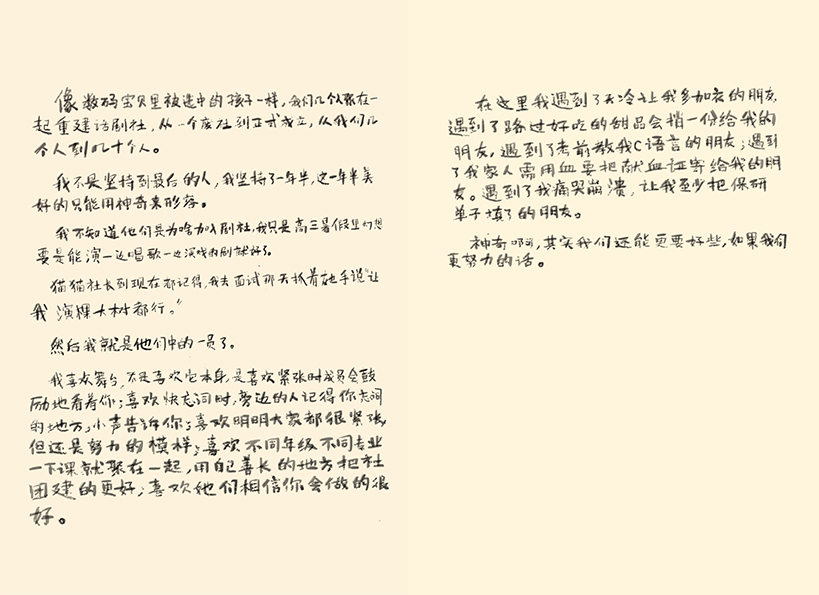 像数码宝贝里被选中的孩子一样，我们几个人聚在一
起重建话剧社，从一个废社到正式成立，从我们几
个人到几十个人。
我不是坚持到最后的人，我坚持了一年半，这一年半美
好的只能用神奇来形容。
我不知道他们是为啥加入剧社，我只是高三暑假里幻想
要是能演一边唱歌一边演戏的剧就好了。
猫猫社长到现在都记得，我去面试那天抓着她手说“让
我演棵大树都行。”
然后我就是他们中的一员了。
我喜欢舞台，不是喜欢它本身，是喜欢紧张时成员会鼓
励地看着你；喜欢快忘词时，旁边的人记得你忘词
的地方，小声告诉你；喜欢明明大家都很紧张，
但还是努力的模样；喜欢不同年级不同专业
一下课就聚在一起，用自己善长的地方把社
团建的更好；喜欢她们相信你会做的很
好。
在这里我遇到了天冷会让我多加衣的朋友，
遇到了路过好吃的甜品会捎一份给我的
朋友，遇到了考前教我C语言的朋友；遇到
了我家人需用血要把献血证寄给我的朋
友。遇到了我痛哭崩溃，让我至少把保研
单子填了的朋友。
神奇啊，其实我们还能更要好些，如果我们
更努力的话。